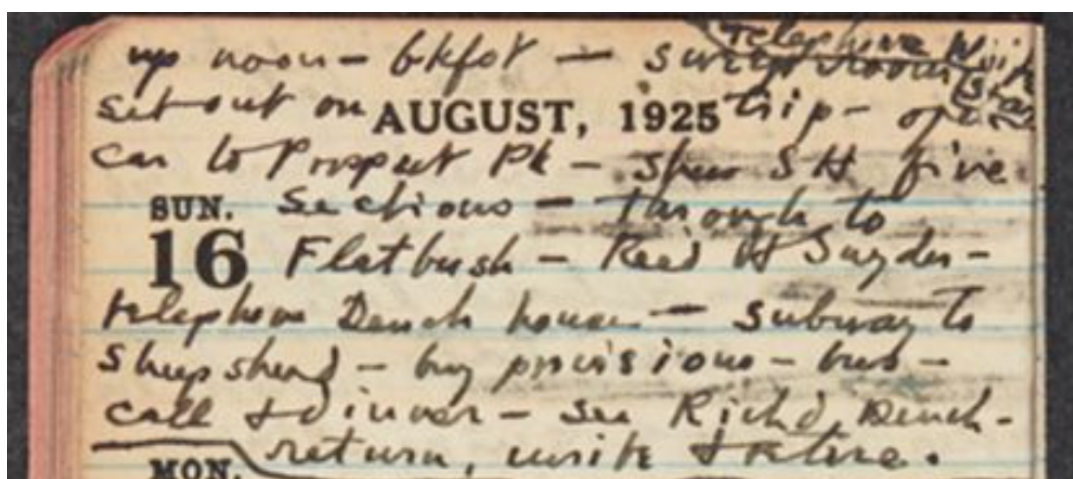 up noon – bkfst –
Telephone
set out on AUGUST, 1925 trip – open
car to Prospect Pk – shew SH five
SUN. sections – through to
16 Flatbush – Reed & Snyder –
telephone Dench house – subway to
Sheepshead – buy provisions – bus –
call & dinner – see Rich'd Dench –
return, write & retire.
MON.